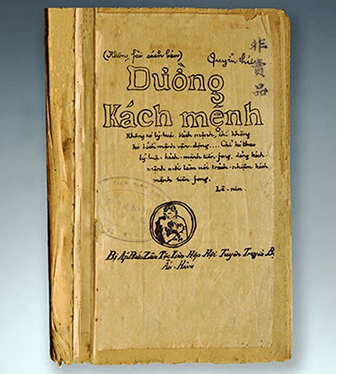 (Không fải sách bán) Quyển
非賣品
Duờng
Kách mệnh
Không có lý luận kách mệnh, thì không
có kách mệnh vận-động.... Chỉ có theo
lý-luận-kách-mệnh tiền-fong, đảng kách-
mệnh mới làm nổi trách-nhiệm kách
mệnh tiền-fong.
Lê-nin.
Bị Áp Bức Zân Tộc Liên Hợp Hội Tuyên Truyền B.
Ấn Hành